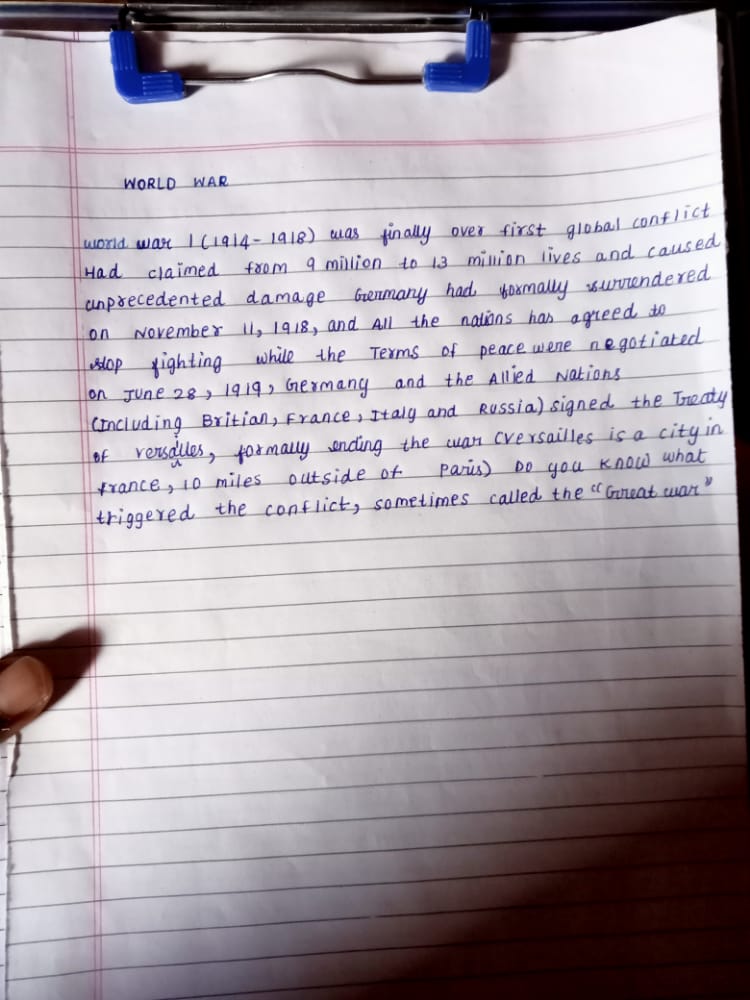 WORLD WAR
world war 1 (1914-1918) was finally over first global conflict
Had claimed from 9 million to 13 million lives and caused
unprecedented damage Germany had formally surrendered
on November 11, 1918, and All the nations has agreed to
stop fighting while the Terms of peace were negotiated
on June 28, 1919, Germany and the Allied Nations
(Including Britian, France, Italy and Russia) signed the Treaty
of versailles, formally ending the war (versailles is a city in
france, 10 miles outside of Paris) Do you know what
triggered the conflict, sometimes called the "Great war"